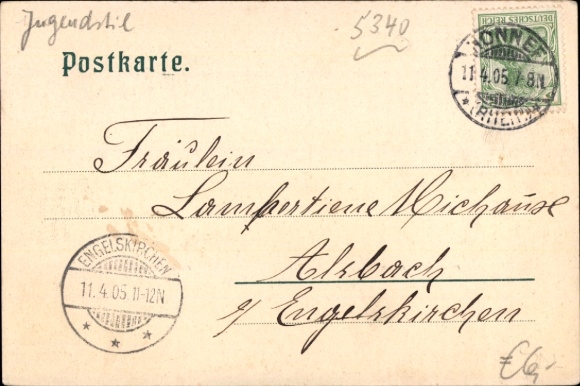 Jugendstil
5340
DEUTSCHES REICH
HONNEF
11.4.05.7-8N.
*(RHEIN)*
Postkarte.
Fräulein
Lampertiene Michause
Alsbach
ENGELSKIRCHEN
11.4.05.11-12N
* * *
b/ Engelskirchen